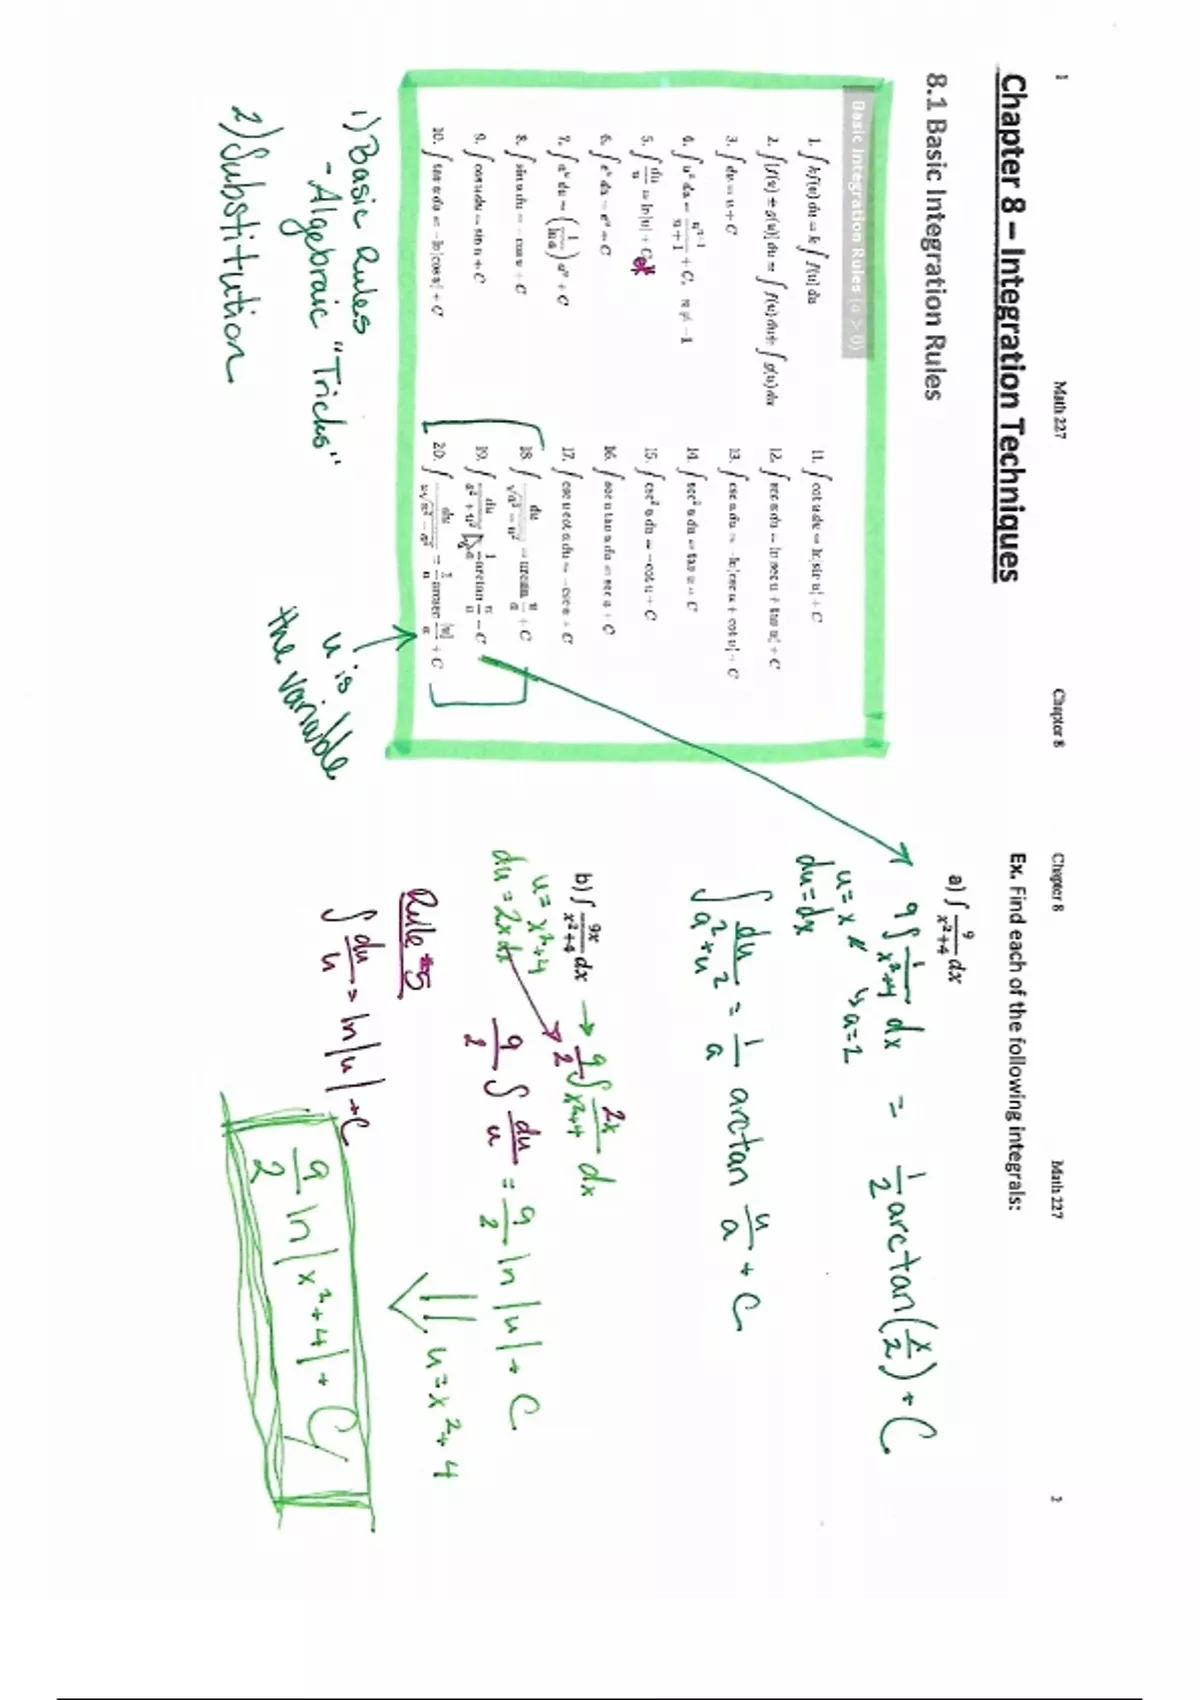 1 Math 227 Chapter 8
Chapter 8 – Integration Techniques
8.1 Basic Integration Rules
Basic Integration Rules (a > 0)
1. ∫ kf(u) du = k ∫ f(u) du
2. ∫ [f(u) ± g(u)] du = ∫ f(u) du ± ∫ g(u) du
3. ∫ du = u + C
4. ∫ uⁿ du = uⁿ⁺¹/(n + 1) + C, n ≠ -1
5. ∫ du/u = ln|u| + C
6. ∫ eᵘ du = eᵘ + C
7. ∫ aᵘ du = (1/ln a) aᵘ + C
8. ∫ sin u du = - cos u + C
9. ∫ cos u du = sin u + C
10. ∫ tan u du = - ln|cos u| + C
11. ∫ cot u du = ln|sin u| + C
12. ∫ sec u du = ln|sec u + tan u| + C
13. ∫ csc u du = -ln|csc u + cot u| + C
14. ∫ sec² u du = tan u + C
15. ∫ csc² u du = -cot u + C
16. ∫ sec u tan u du = sec u + C
17. ∫ csc u cot u du = -csc u + C
18. ∫ du/√(a² - u²) = arcsin u/a + C
19. ∫ du/(a² + u²) = 1/a arctan u/a + C
20. ∫ du/(u√(u² - a²)) = 1/a arcsec |u|/a + C
1) Basic Rules
- Algebraic "Tricks"
2) Substitution
u is
the variable
Chapter 8 Math 227 2
Ex. Find each of the following integrals:
a) ∫ 9/(x²+4) dx
9∫ 1/(x²+4) dx = 1/2 arctan(x/2) + C
u = x a = 2
du = dx
∫ du/(a²+u²) = 1/a arctan u/a + C
b) ∫ 9x/(x²+4) dx → 9/2 ∫ 2x/(x²+4) dx
u = x²+4
du = 2x dx
9/2 ∫ du/u = 9/2 ln|u| + C
Rule #5
u = x²+4
∫ du/u = ln|u| + C
9/2 ln|x²+4| + C